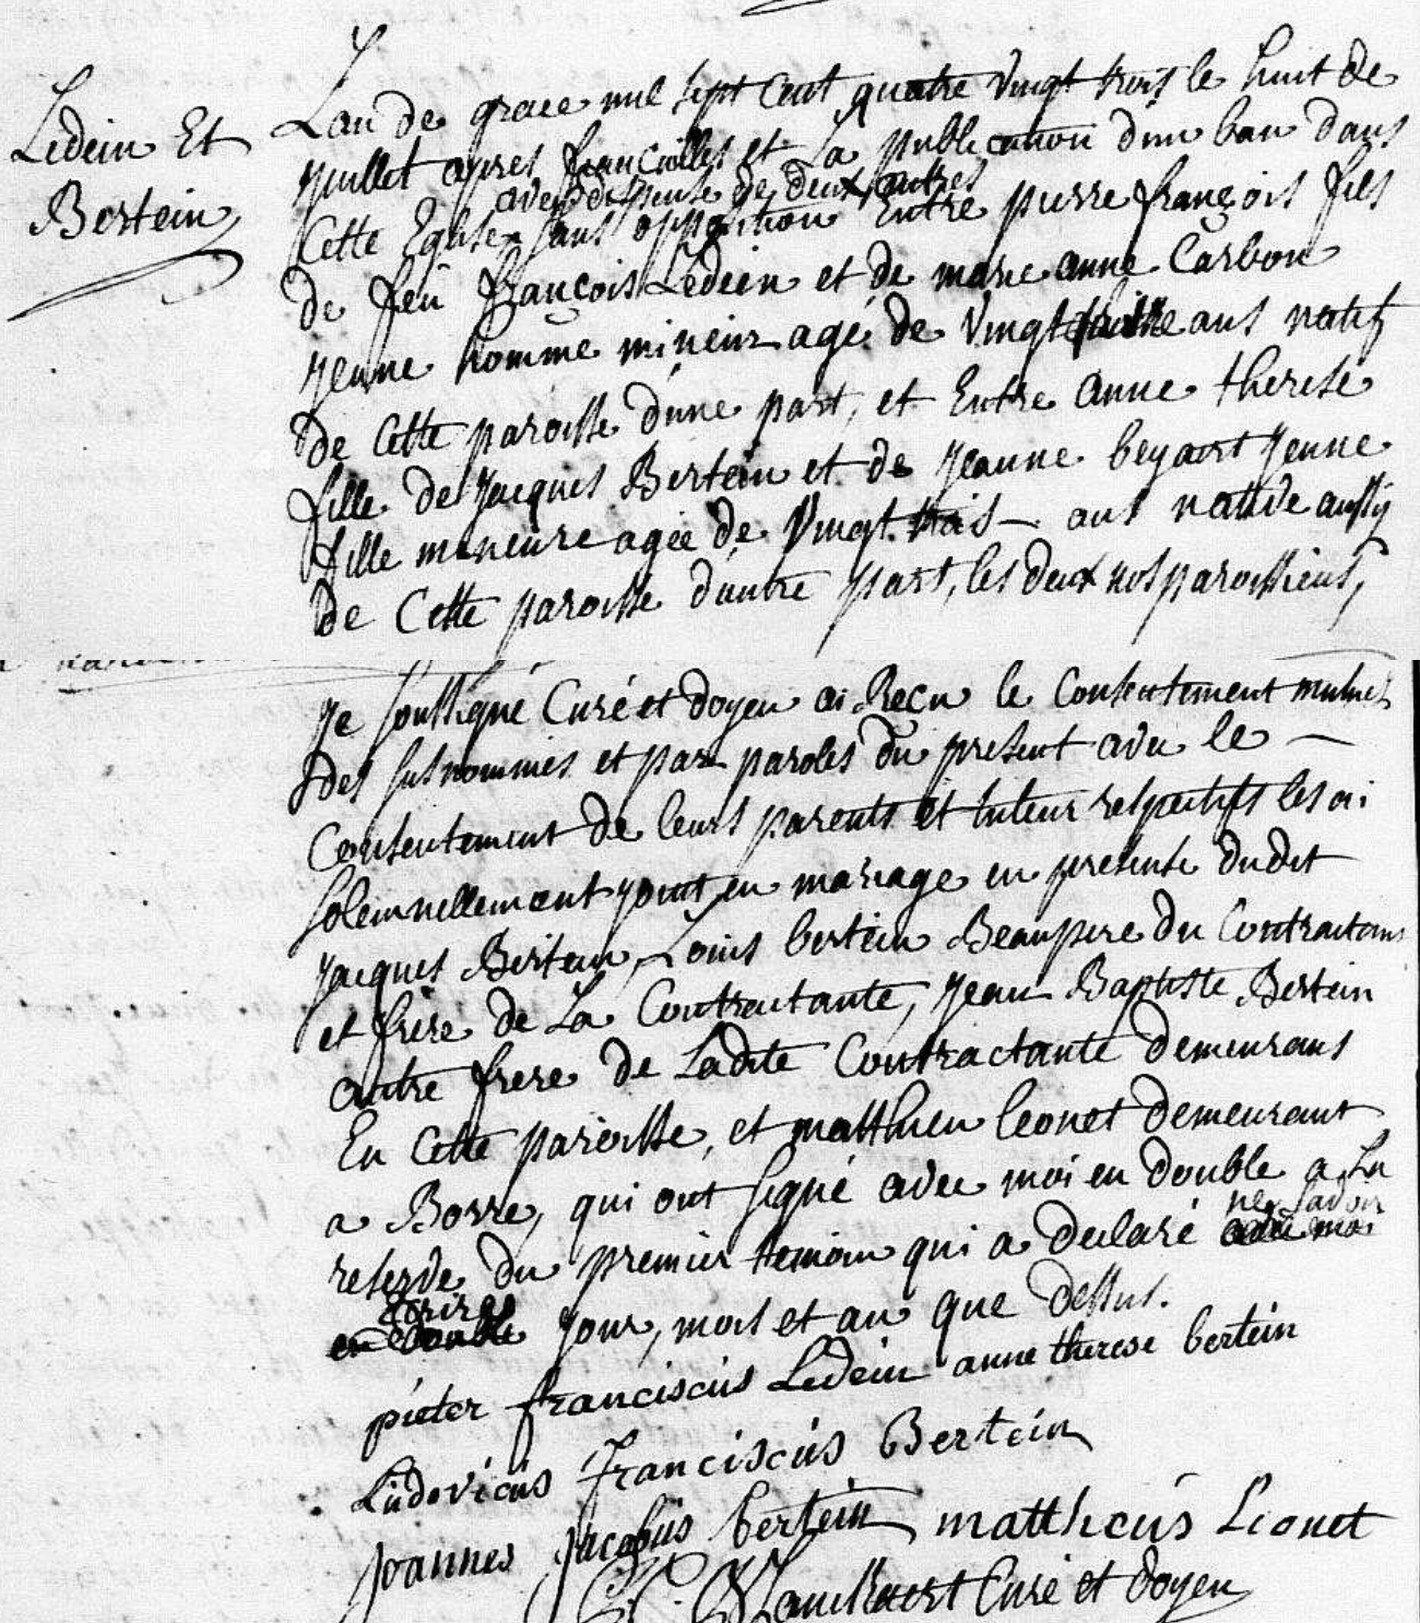 Ledein Et
Bertein
L'an de grace mil sept cent quatre vingt trois le huit de
juillet apres fiancailles et La publication d'un ban dans
avec dispense de deux autres
Cette Eglise sans opposition Entre pierre françois fils
de feu françois Ledein et de marie anne Carbon
jeune homme mineur agé de vingt ans natif
de Cette paroisse d'une part, et Entre anne therese
fille de Jacques Bertein et de jeanne beyaert jeune
fille mineure agée de vingt trois — ans native aussy
de Cette paroisse d'autre part, les deux nos paroissiens,
je soussigné Curé et doyen ai Reçu le Consentement mutuel
des susnommés et par paroles du present avec le —
Consentement de leurs parents et tuteur respectifs les ai
solemnellement joint en mariage en presence dudit
jacques Bertein, Louis bertein Beaupere du Contractans
et frere de La Contractante, jean Baptiste Bertein
autre frere de Ladite Contractante demeurans
En Cette paroisse, et matthieu leonet demeurant
a Borre, qui ont signé avec moi en double a La
reserve du premier temoin qui a declaré ne savoir
ecrire jour, mois et an que dessus.
pieter franciscus Ledein anne therese bertein
Ludovicus Franciscus Bertein
Joannes Jacobus bertein mattheus Lionet
Curé et doyen